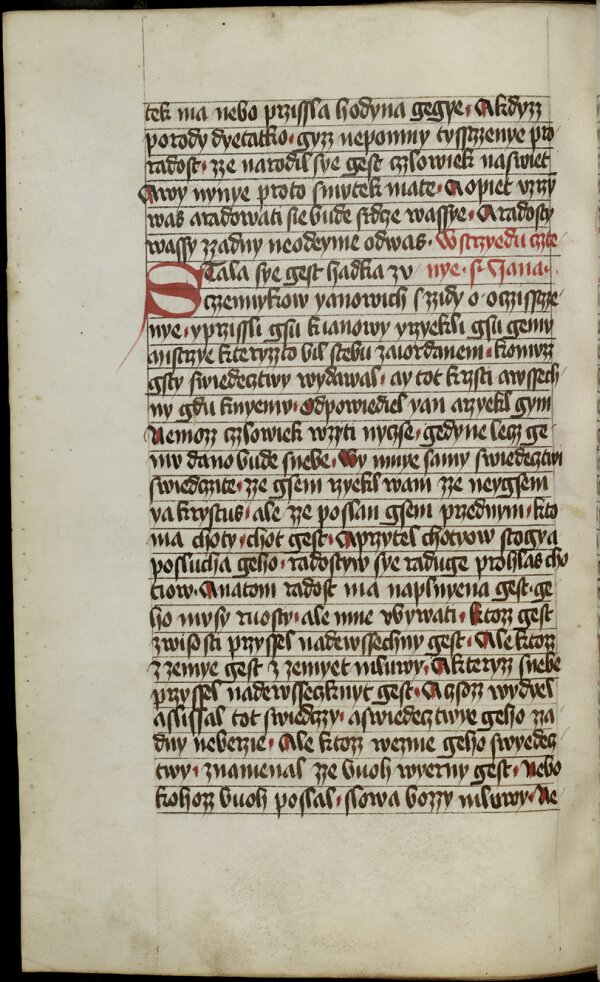 tek ma nebo przissla hodyna gegye · Akdyzz
porody dyetatko · gyzz nepomny tyssczenye pro
radost · zze narodil sye gest czlowiek naswiet
Awy nynye proto smutek mate · Aopiet vzrzy
was aradowati sie bude srdze wassye · Aradosty
wassy zzadny neodeyme odwas · Wstrzyedu czte
STala sye gest hadka zv nye · s · Yana ·
czennykow yanowich s zidy o oczisscze
nye · yprzissli gsu k ianowy yrzyekli gsu gemu
mistrzye kteryzto bil stebu zaiordanem · komuz
gsty swiedecztwy wydawal · ay tot krzsti awssech
ny gdu knyemu · Odpowiediel yan arzyekl gym
Nemozz czlowiek wzyti nyczse · gedyne lecz ge
mv dano bude snebe · Wy mnye samy swiedecztwi
swiedczite · zze gsem rzyekl wam zze neygsem
ya krystus · ale zze poslan gsem przednym · kto
ma choty · chot gest · Aprzytel chotyow stogy a
poslucha geho · radostyw sye raduge prohlas cho
tiow · Anatom radost ma naplnyena gest · ge
ho musy ruosty · ale mne vbywati · Ktozz gest
zwisosti przyssel nadewssechny gest · Ale ktozz
z zemye gest z zemyet mluwy · Akteryzz snebe
przyssel nadewsseczknyt gest · Aczsozz wydyel
aslissal tot swiedczy · aswiedecztwye geho za
dny neberzie · Ale ktozz wezme geho swyedecz
twy · znamenal zze buoh wyerny gest · Nebo
kohozz buoh poslal · slowa bozzy mluwy · Ne